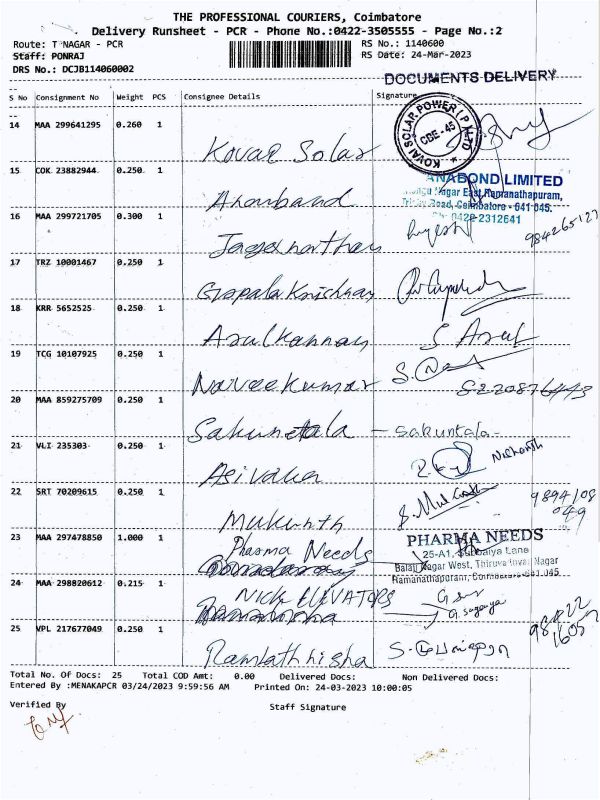 THE PROFESSIONAL COURIERS, Coimbatore
Delivery Runsheet - PCR - Phone No.:0422-3505555 - Page No.:2
Route: T NAGAR - PCR RS No.: 1140600
Staff: PONRAJ RS Date: 24-Mar-2023
DRS No.: DCJB114060002
DOCUMENTS DELIVERY
S No Consignment No Weight PCS Consignee Details Signature
14 MAA 299641295 0.260 1
KOVAI SOLAR POWER (P) LTD CBE - 45
Kovae Solar
15 COK 23882944 0.250 1
ANABOND LIMITED
Nagar East, Ramanathapuram,
Road, Coimbatore - 641 045.
0422-2312641
16 MAA 299721705 0.300 1
Jagganathan
17 TRZ 10001467 0.250 1
Gopala Krishnan
18 KRR 5652525 0.250 1
Arulkannan S Arul
19 TCG 10107925 0.250 1
Naveekumar
20 MAA 859275709 0.250 1
Sakunetala - sakuntala -
21 VLI 235303 0.250 1
Nishanth
22 SRT 70209615 0.250 1
9894108
049
Mukunth
23 MAA 297478850 1.000 1
PHARMA NEEDS
Pharma Needs
25-A1, Subbaiya Lane
Balaji Nagar West, Nagar
Ramanathapuram, Coimbatore-641 045
24 MAA 298820612 0.215 1
Nick ELEVATORS
25 VPL 217677049 0.250 1
Ramlathhisha
Total No. Of Docs: 25 Total COD Amt: 0.00 Delivered Docs: Non Delivered Docs:
Entered By :MENAKAPCR 03/24/2023 9:59:56 AM Printed On: 24-03-2023 10:00:05
Verified By Staff Signature